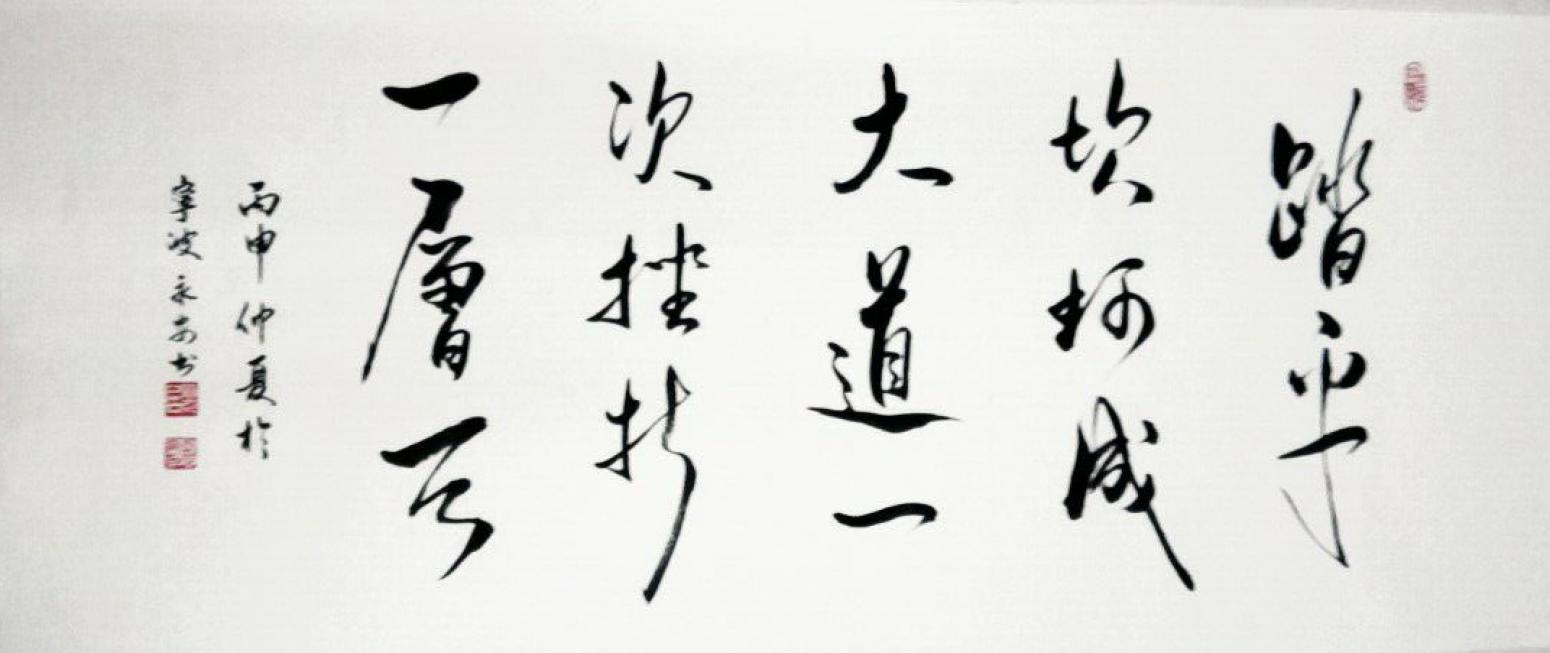 踏平
坎坷成
大道一
次挫折
一層天
丙申仲夏於
寧波永安书